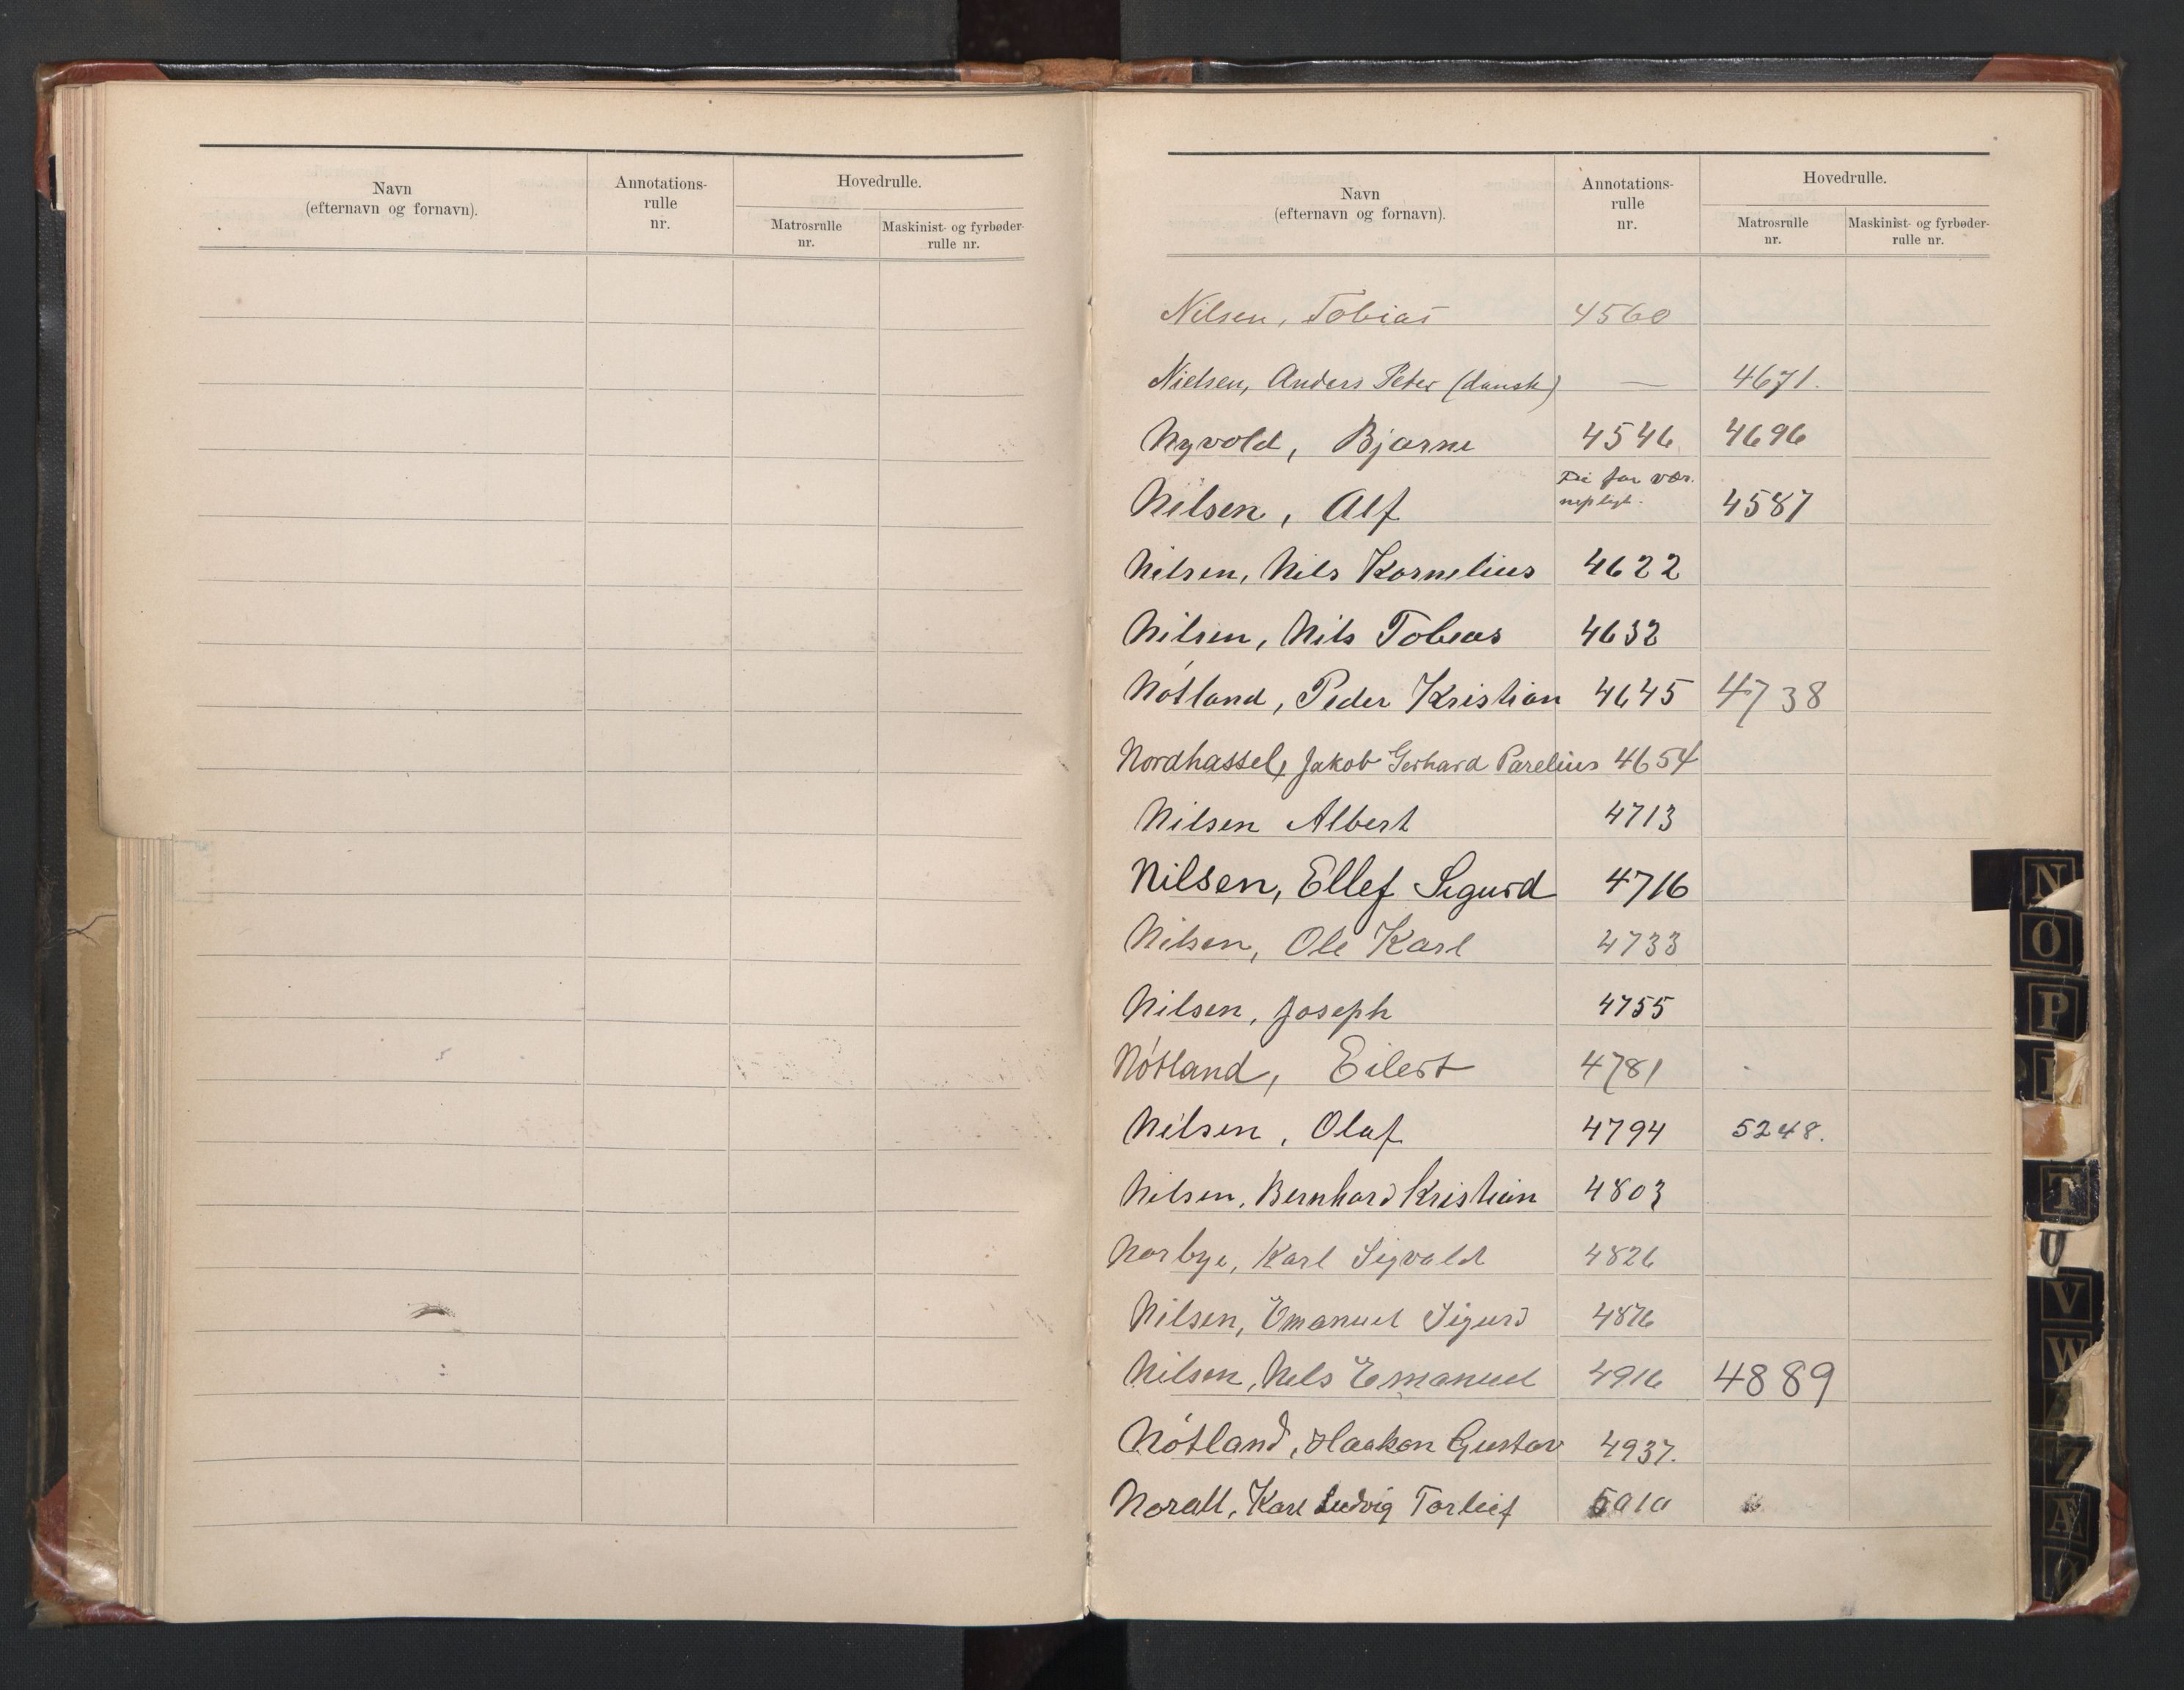 Navn
(efternavn og fornavn).
Annotations-
rulle
nr.
Hovedrulle.
Matrosrulle
nr.
Maskinist- og fyrbøder-
rulle nr.
Navn
(efternavn og fornavn).
Annotations-
rulle
nr.
Hovedrulle.
Matrosrulle
nr.
Maskinist- og fyrbøder-
rulle nr.
Nilsen, Tobias 4560
Nielsen, Anders Peter (dansk) — 4671.
Nyvold, Bjarne 4546 4696
Nilsen, Alf Fri for vær.
nepligt. 4587
Nilsen, Nils Kornelius 4622
Nilsen, Nils Tobias 4632
Nótland, Peder Kristian 4645 4738
Nordhassel, Jakob Gerhard Parelius 4654
Nilsen Albert 4713
Nilsen, Ellef Sigurd 4716
Nilsen, Ole Karl 4733
Nilsen, Joseph 4755
Nótland, Eilert 4781
Nilsen, Olaf 4794 5248.
Nilsen, Bernhard Kristian 4803
Norbye, Karl Sigvald 4826
Nilsen, Emanuel Sigurd 4876
Nilsen, Nils Emanuel 4916 4889
Nótland, Haakon Gustav 4937.
Norall, Karl Ludvig Torleif 5010
N
O
P
T
U
V
W
Z
Æ